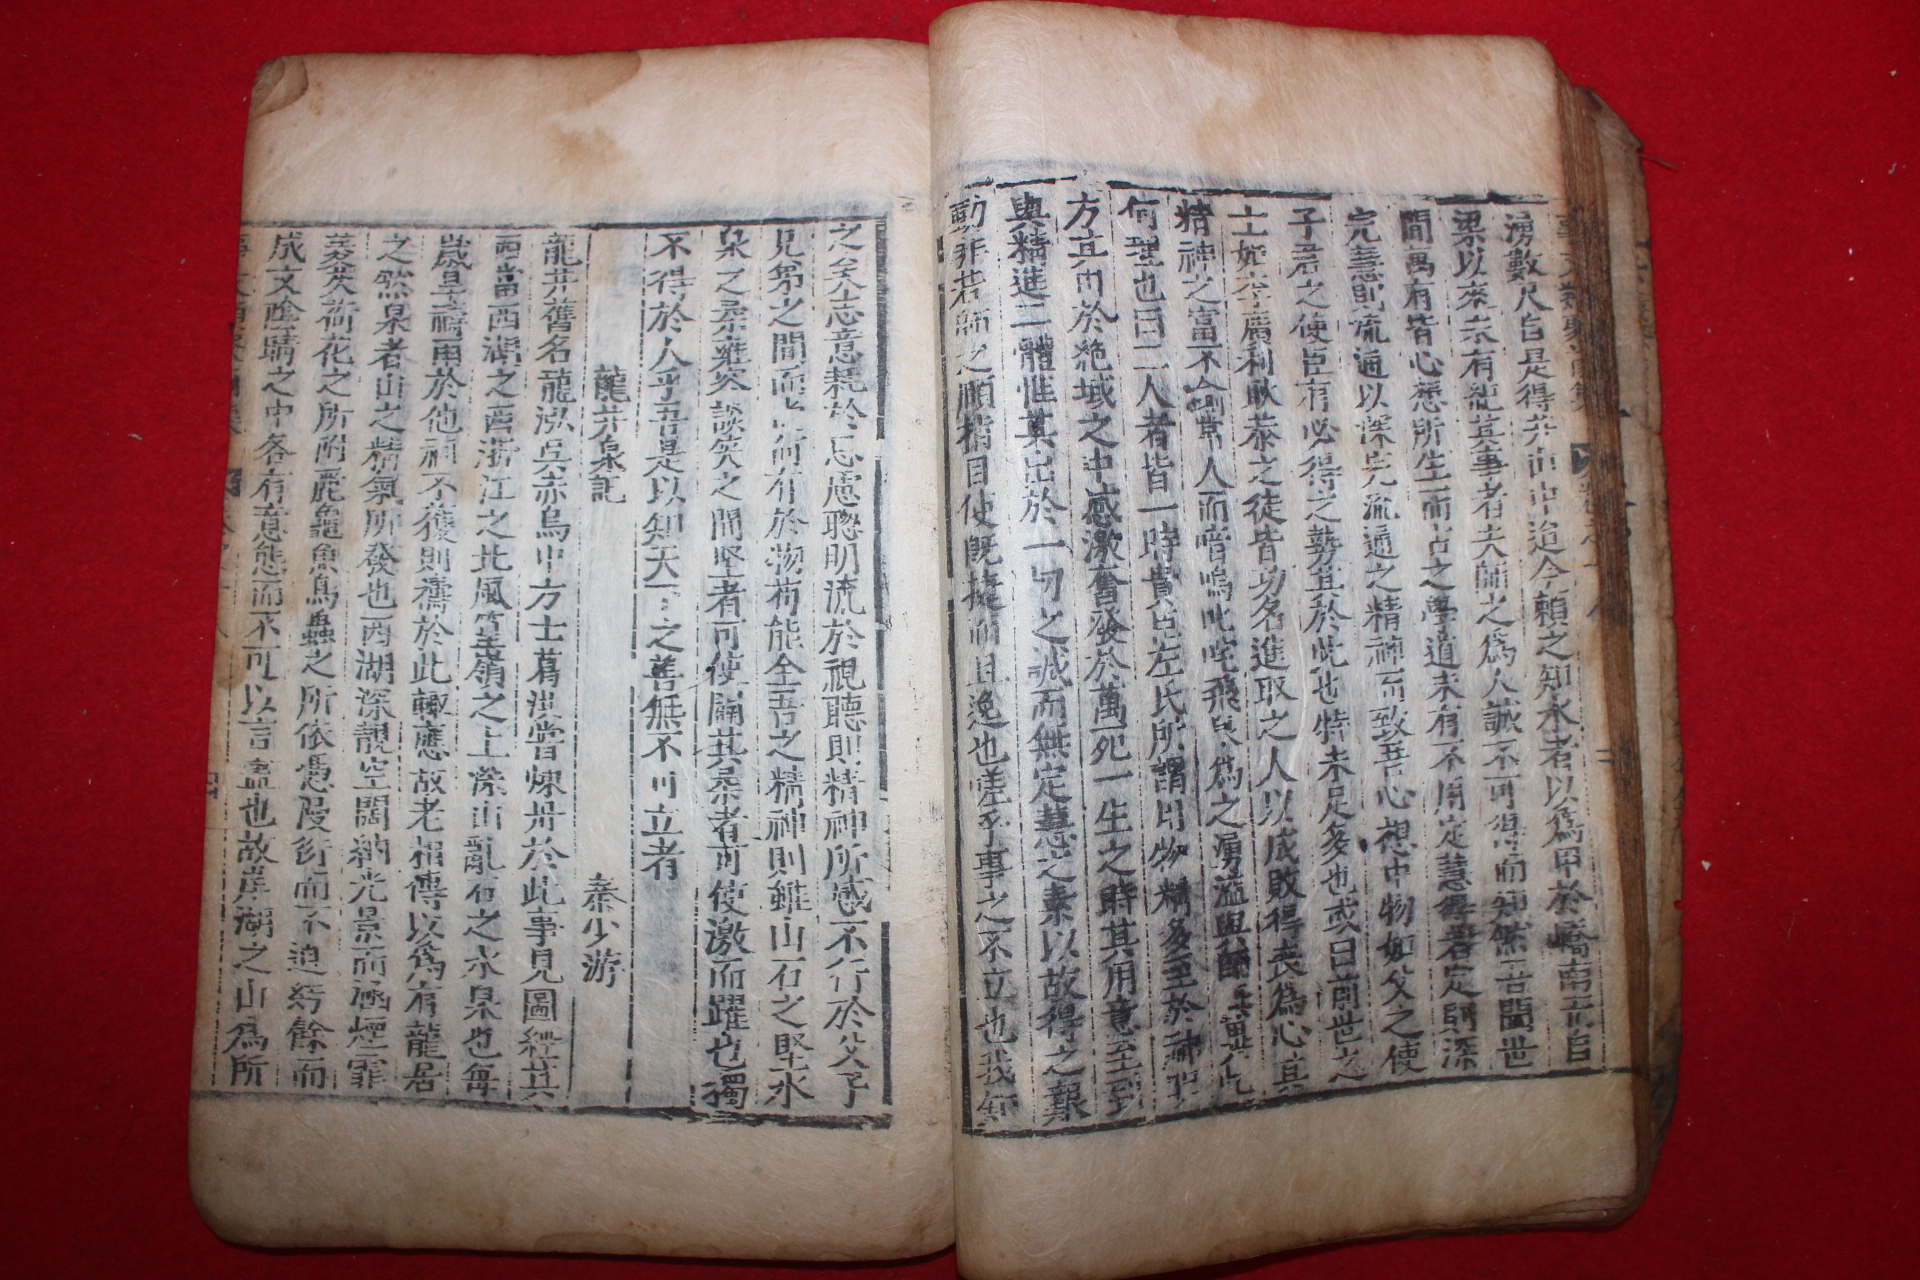 湧數尺自是得井而出迨今賴之知水者以爲甲於嶠南焉自
梁以來未有紀其事者夫師之爲人誠不可得而知然吾聞世
間萬有皆心想所生而古之學道未有不用定慧得者定則深
完慧則流通以深完流通之精神而致吾心想中物如父之使
子君之使臣有必得之勢其於此也特未足多也或曰前世之
士如李廣利耿恭之徒皆功名進取之人以成敗得喪爲心宜其
精神之富不逾常人而喑嗚叱咤飛泉爲之湧溢與師無異此
何理也曰二人者皆一時貴臣左氏所謂用物精多至於神明
方其用於絶域之中感激奮發於萬死一生之時其用意至到
與精進二體性其出於一切之誠而無定慧之素以故得之艱
動非若師之顧揩目使旣捷而且逸也嗟乎事之不立也我知
之矣志意耗於思慮聰明流於視聽則精神所感不行於父子
兄弟之間而况而有於物苟能全吾之精神則雖山石之堅水
泉之柔雍容談笑之間堅者可使闢其柔者可使激而躍也獨
不得於人乎吾是以知天下之善無不可立者
龍井泉記 秦少游
龍井舊名龍泓吳赤烏中方士葛洪嘗煉丹於此事見圖經其
西當西湖之西浙江之北風篁嶺之上深山亂石之水泉也每
歲旱禱雨於他祠不獲則禱於此輒應故老相傳以爲有龍居
之然泉者山之精氣所發也西湖深靚空闊納光景而涵煙霏
菱芡荷花之所附麗龜魚鳥蟲之所依憑漫衍而不迫紆餘而
成文陰晴之中各有意態而不可以言盡也故岸湖之山爲所